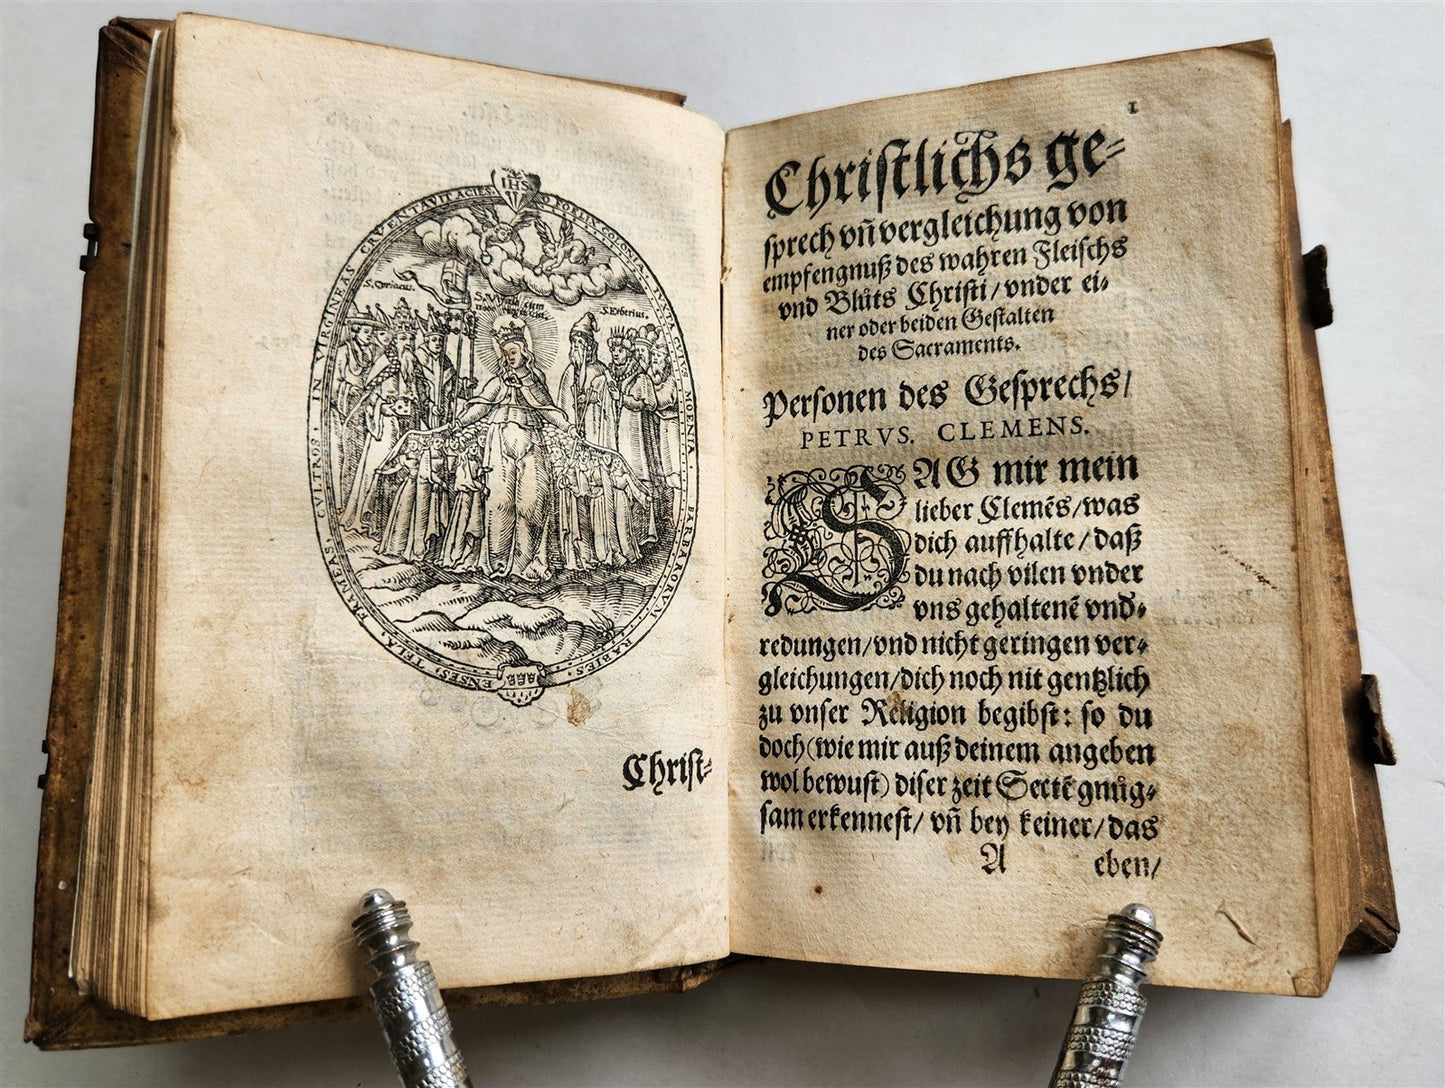 IHS
O FOELIX COLONIA, IVXTA CVIVS MOENIA BARBARORVM RABIES, ENSES, TELA, FRAMEAS, CVLTROS, IN VIRGINEAS CRVENTAVIT ACIES.
S. Ciriacus.
S. Vrsula cum
S. Etherius.
Christ⸗
1
Christlichs ge⸗
sprech vñ vergleichung von
empfengnuß des wahren Fleischs
vnd Blůts Christi / vnder ei⸗
ner oder beiden Gestalten
des Sacraments.
Personen des Gesprechs /
PETRVS. CLEMENS.
SAG mir mein
lieber Clemẽs / was
dich auffhalte / daß
du nach vilen vnder
vns gehaltenẽ vnd⸗
redungen / vnd nicht geringen ver⸗
gleichungen / dich noch nit gentzlich
zu vnser Religion begibst : so du
doch (wie mir auß deinem angeben
wol bewust) diser zeit Sectẽ gnůg⸗
sam erkennest / vñ bey keiner / das
A eben /